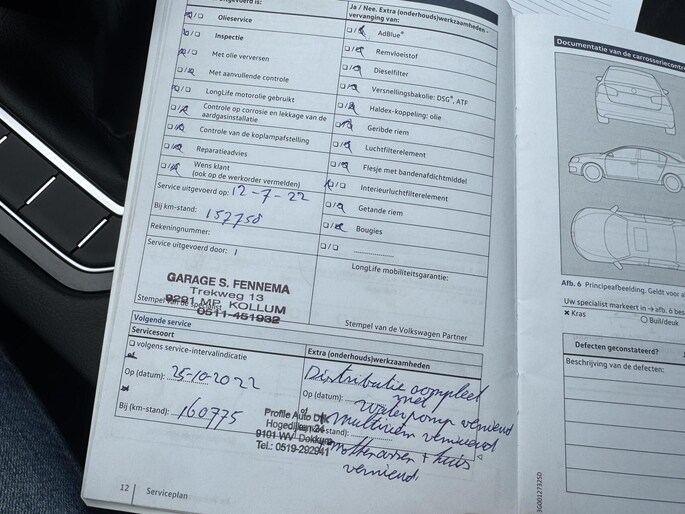 uitgevoerd is:
☒/☐ Olieservice
☒/☐ Inspectie
☒/☐ Met olie verversen
☒/☐ Met aanvullende controle
☒/☐ LongLife motorolie gebruikt
☐/☒ Controle op corrosie en lekkage van de
aardgasinstallatie
☐/☒ Controle van de koplampafstelling
☐/☒ Reparatieadvies
☐/☒ Wens klant
(ook op de werkorder vermelden)
Service uitgevoerd op: 12-7-22
Bij km-stand: 157758
Rekeningnummer:
Service uitgevoerd door:
GARAGE S. FENNEMA
Trekweg 13
9291 MP KOLLUM
0511-451932
Stempel van de specialist
Ja / Nee. Extra (onderhouds)werkzaamheden -
vervanging van:
☐/☒ AdBlue®
☐/☒ Remvloeistof
☐/☒ Dieselfilter
☐/☒ Versnellingsbakolie: DSG®, ATF
☐/☒ Haldex-koppeling: olie
☐/☒ Geribde riem
☐/☒ Luchtfilterelement
☐/☒ Flesje met bandenafdichtmiddel
☒/☐ Interieurluchtfilterelement
☐/☒ Getande riem
☐/☒ Bougies
☐/☐ ..............
LongLife mobiliteitsgarantie:
Stempel van de Volkswagen Partner
Volgende service
Servicesoort
☐ volgens service-intervalindicatie
Op (datum): 25-10-2022
Bij (km-stand): 160775
Extra (onderhouds)werkzaamheden
Distributie compleet
met
Op (datum): waterpomp vernieuwd
of multiriem vernieuwd
stand):
+ huis
vernieuwd
Profile Auto
Hogedijken 24
9101 WV Dokkum
Tel.: 0519-292941
12 Serviceplan
Documentatie van de carrosseriecontro
Afb. 6 Principeafbeelding. Geldt voor a
Uw specialist markeert in → afb. 6 bes
✕ Kras
○ Buil/deuk
Defecten geconstateerd?
Beschrijving van de defecten:
3G0012732SD